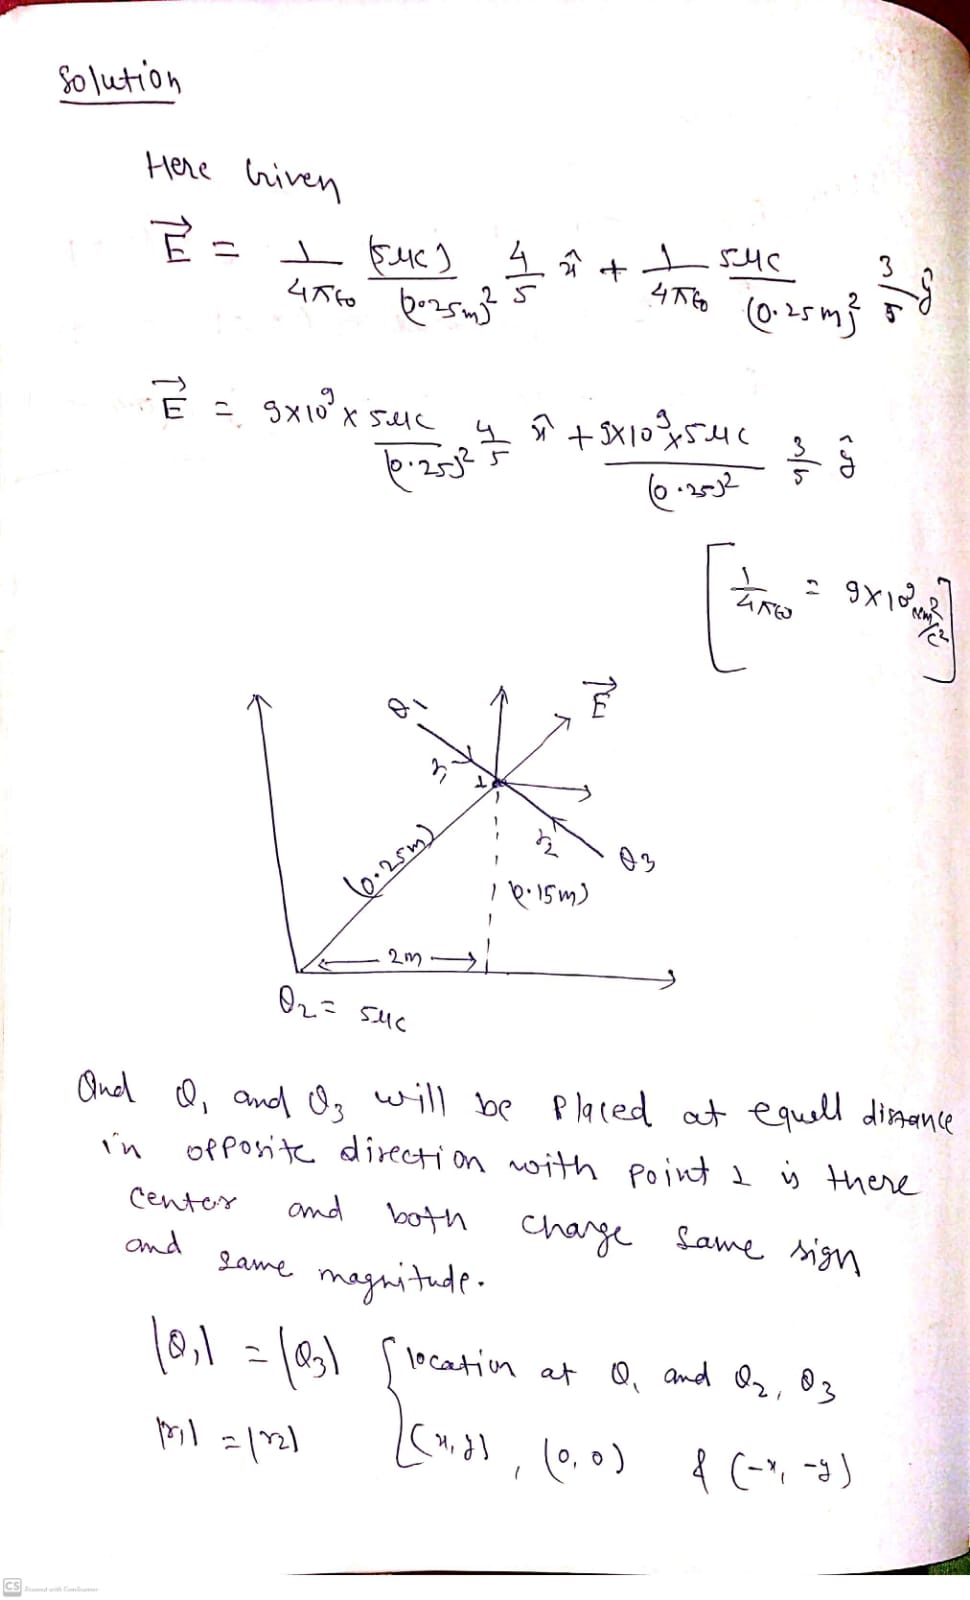 Solution
Here Given
E⃗ = 1/4πε0 (5μC)/(0.25m)² 4/5 x̂ + 1/4πε0 5μC/(0.25m)² 3/5 ŷ
E⃗ = 9×10⁹ × 5μC/(0.25)² 4/5 x̂ + 9×10⁹×5μC/(0.25)² 3/5 ŷ
[1/4πε0 = 9×10⁹ Nm²/C²]
Q1
E⃗
r1
1
r2
Q3
(0.25m)
(0.15m)
2m
Q2 = 5μC
And Q1 and Q3 will be placed at equell distance
in opposite direction with point 1 is there
center and both charge same sign
and same magnitude.
|Q1| = |Q3| { location at Q1 and Q2, Q3
|r1| = |r2| (x, y), (0, 0) & (-x, -y)
CS Scanned with CamScanner